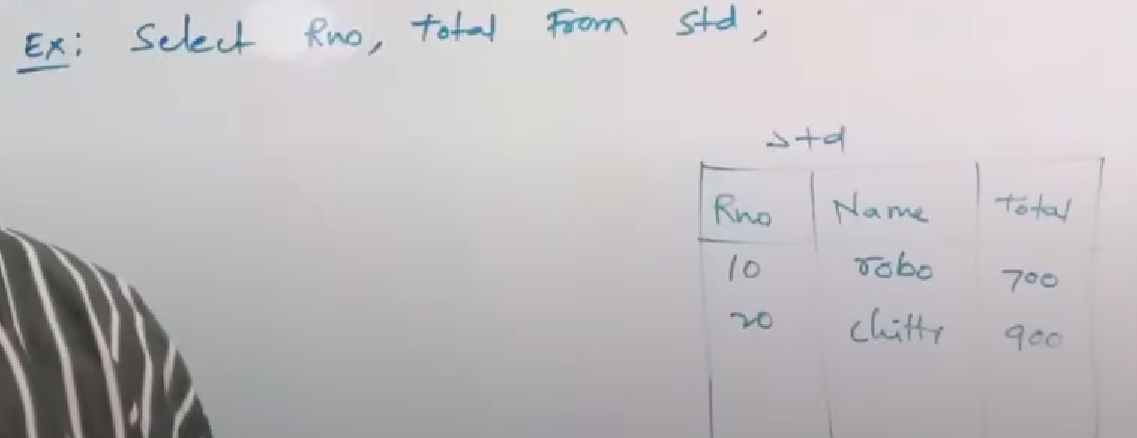 Ex: Select Rno, total From Std;
std
Rno Name Total
10 robo 700
20 chitty 900